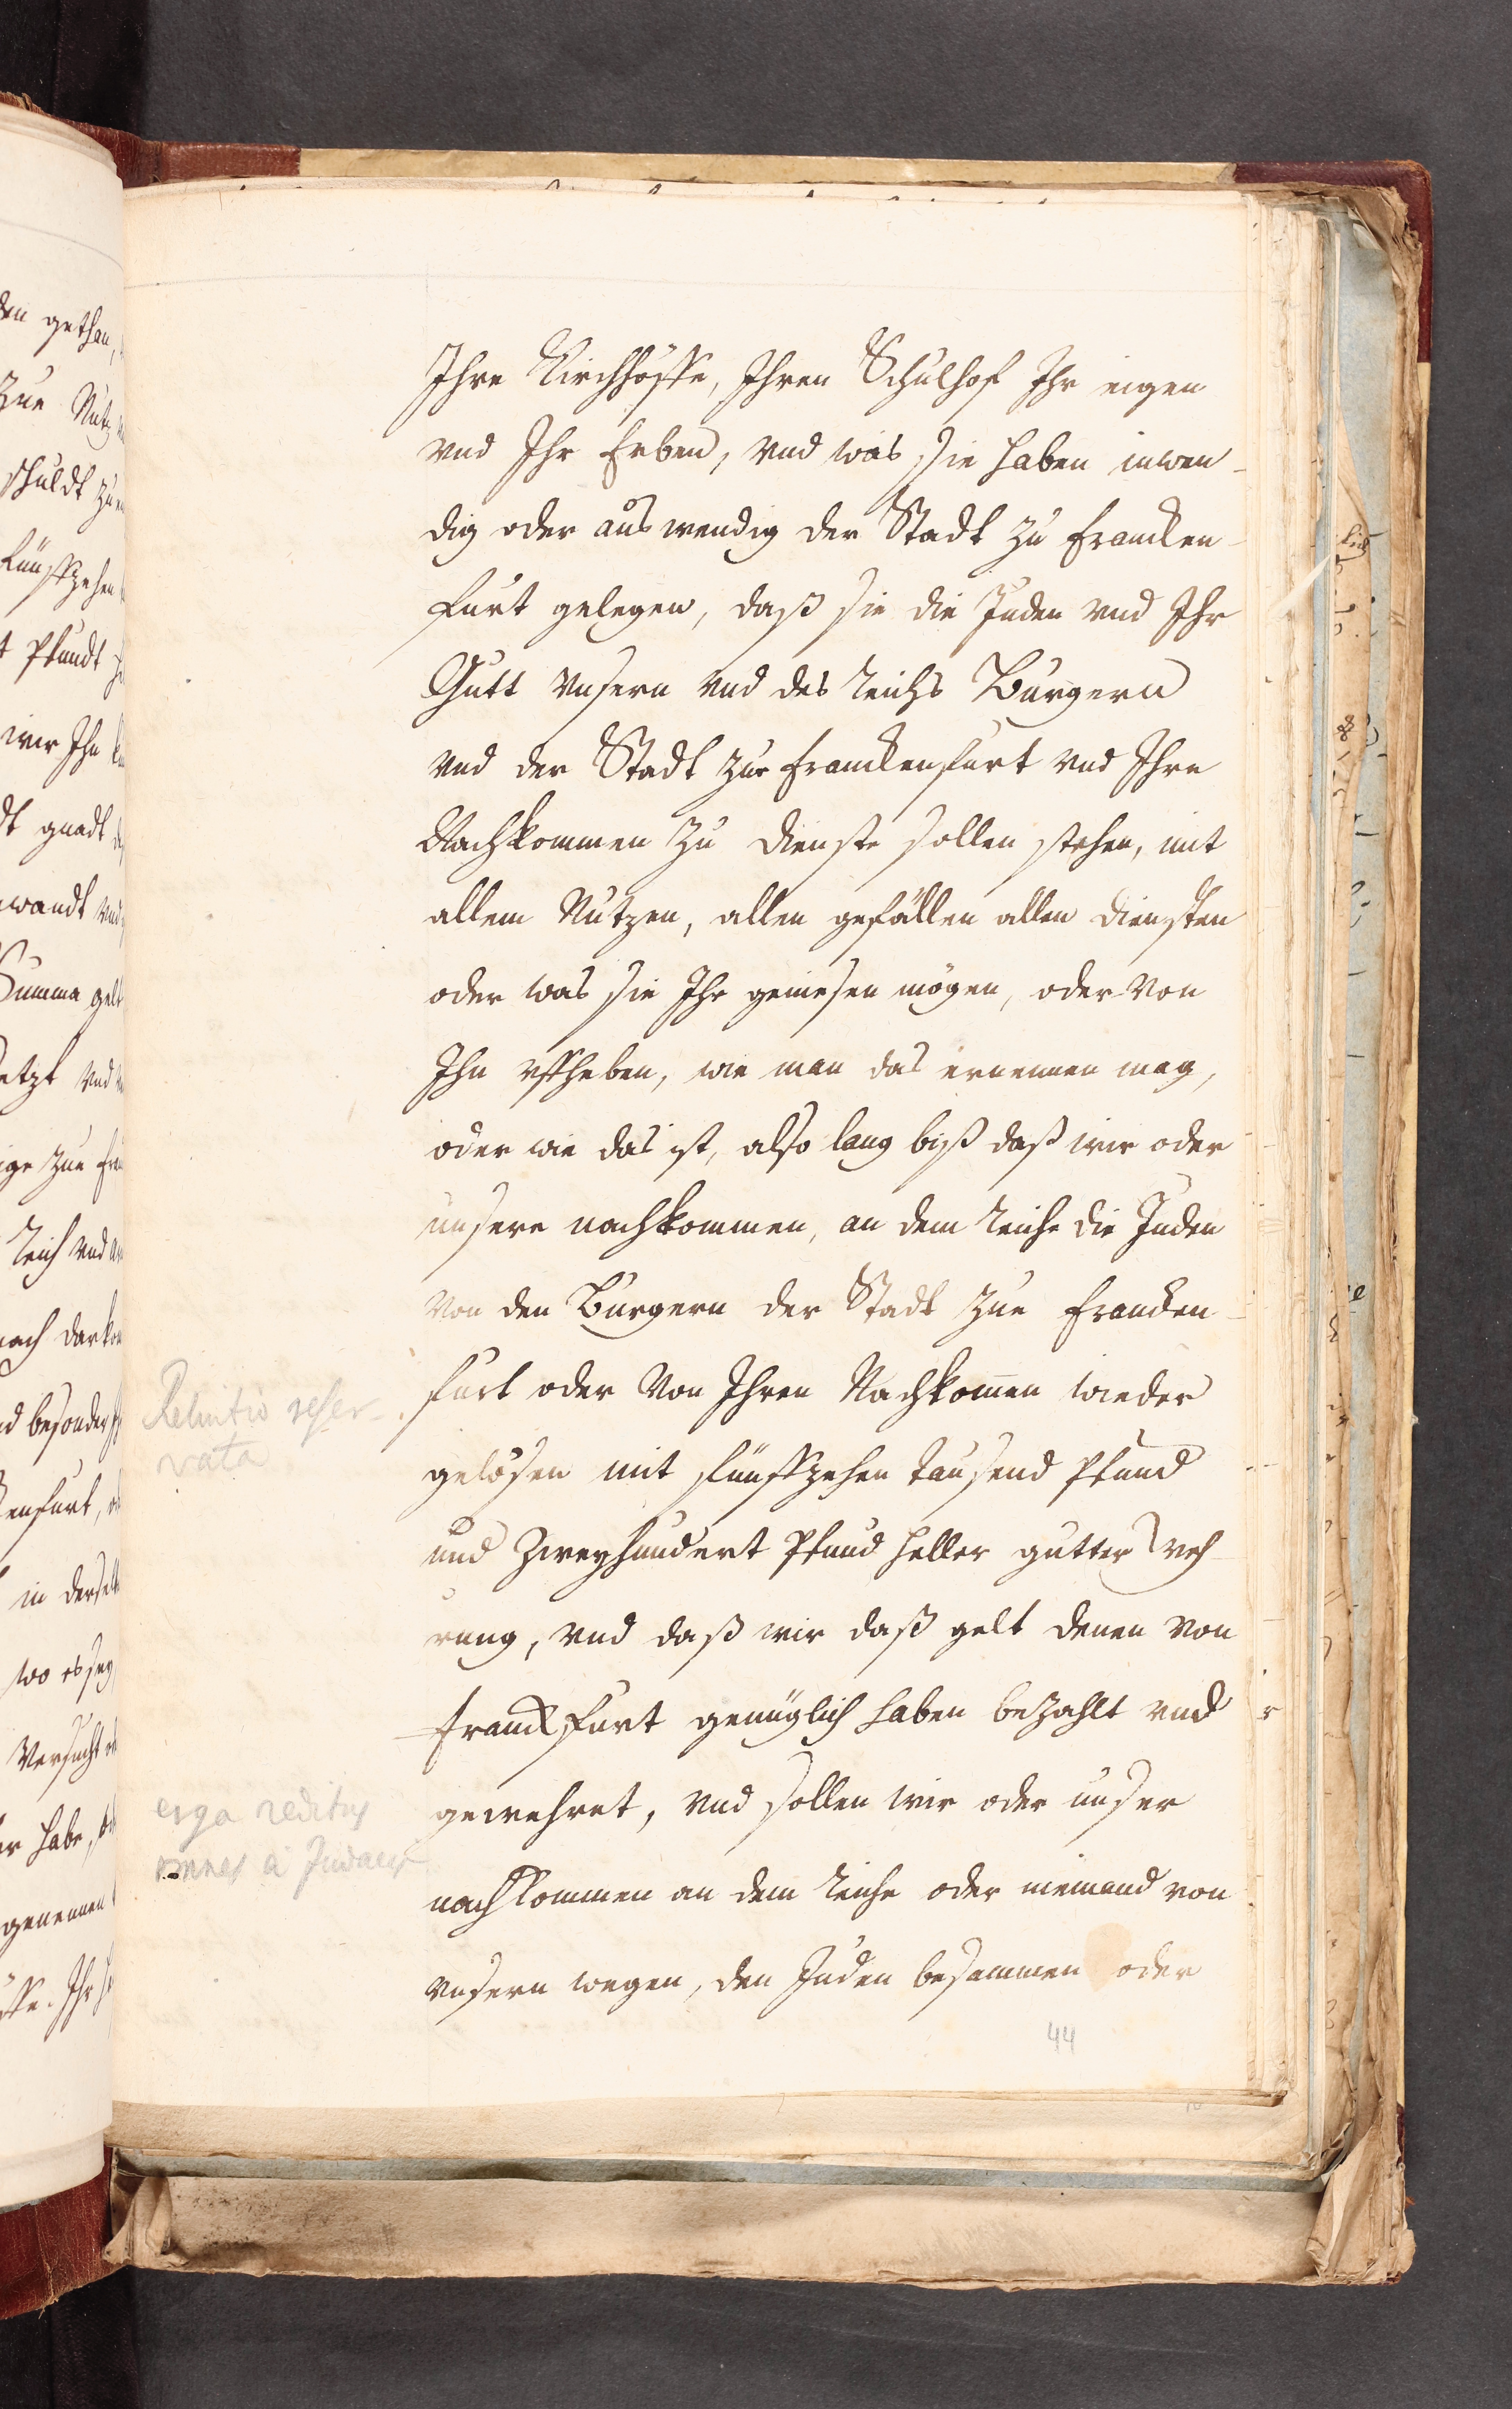 Ihre Kirchhöffe, Ihren Schulhof Ihr eigen
vnd Ihr Erben, vnd was sie haben inwen-
dig oder auswendig der Stadt zu Francken-
furt gelegen, daß sie die Juden vnd Ihr
Gutt vnsern vnd des Reichs Burgern
vnd der Stadt zue Franckenfurt vnd Ihre
Nachkommen zu dienste sollen stehen, mit
allem Nutzen, allen gefällen allen diensten
oder was sie Ihr geniesen mögen, oder von
Ihn vffheben, wie man das ernennen mag,
oder wie das ist, also lang biß daß wir oder
unsere nachkommen, an dem Reiche die Juden
von den Burgern der Stadt zue Francken-
furt oder von Ihren Nachkom̅en wieder
gelösen mit fünffzehen tausend Pfund
und zweyhundert Pfund heller gutter Weh
rung, vnd daß wir daß gelt denen von
Franckfurt genüglich haben bezahlt vnd
gewehret, vnd sollen wir oder unser
nachkommen an dem Reiche oder niemand von
vnsern wegen, den Juden besammen oder
Reluitio reser-
vata
erga reditus
omnes a Judaeis
44
den gethan,
zue Nutz
schuldt zue
fünffzehen
Pfundt
wir Ihn
gnadt
wandt vnd
Summa gelt
vnd
zue
Reich vnd
nach
besonder
enfurt,
in
wo es sey
Versucht
habe,
genennen
Ihr